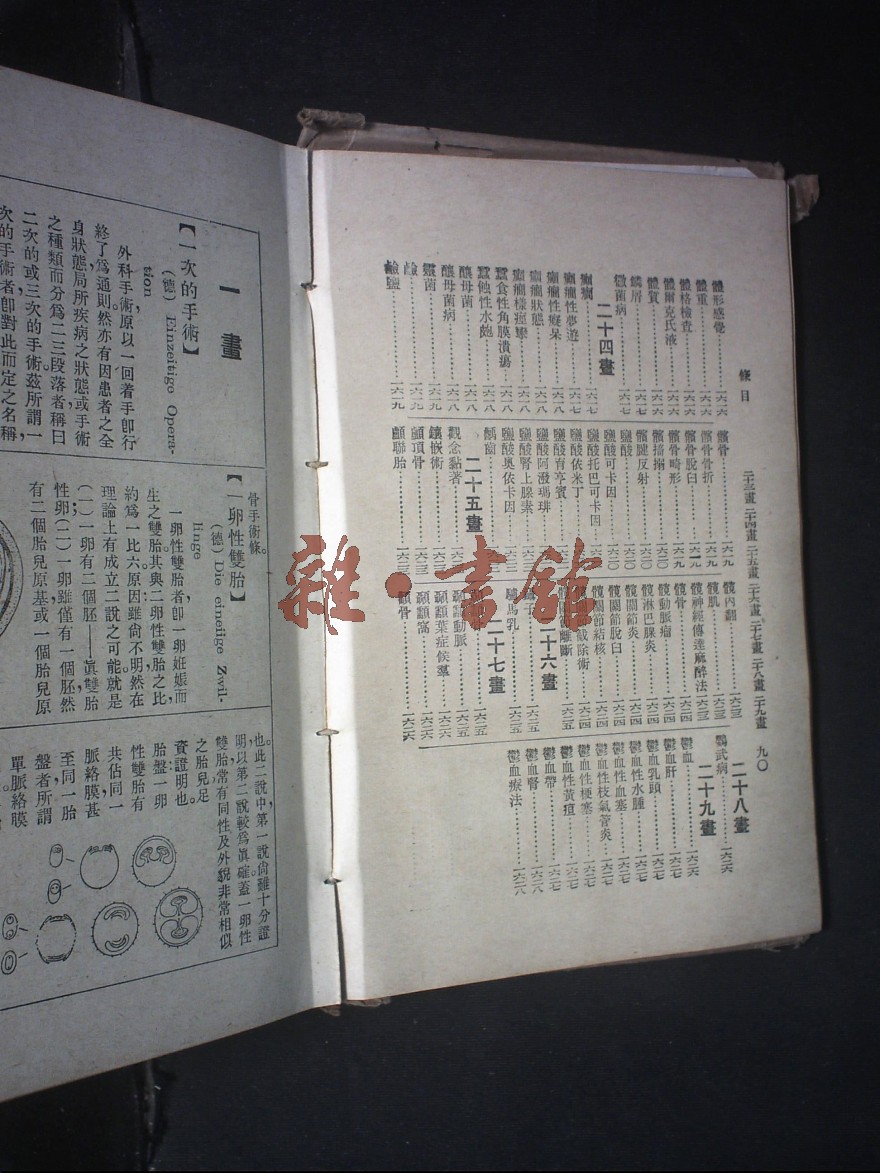 條目
二十三畫 二十四畫 二十五畫 二十六畫 二十七畫 二十八畫 二十九畫
九〇
體形感覺……一六一六
體重……一六一六
體格檢査……一六一六
體爾克氏液……一六一六
體質……一六一七
鱗屑……一六一七
黴菌病……一六一七
二十四畫
癲癇……一六一七
癲癇性夢遊……一六一七
癲癇性癡呆……一六一八
癲癇狀態……一六一八
癲癇樣痙攣……一六一八
蠶食性角膜潰瘍……一六一八
蠶蝕性水皰……一六一八
釀母菌……一六一八
釀母菌病……一六一八
靈菌……一六一九
鹼……一六一九
鹼鹽……一六一九
髕骨……一六一九
髕骨骨折……一六一九
髕骨脫臼……一六一九
髕骨畸形……一六一九
髕擣搦……一六二〇
髕腱反射……一六二〇
鹽酸……一六二〇
鹽酸可卡因……一六二〇
鹽酸托巴可卡因
鹽酸依米丁
鹽酸育亨賓
鹽酸阿潑瑪琲
鹽酸腎上腺素
鹽酸奧依卡因
齲齒
二十五畫
觀念黏著
鑲嵌術
顱頂骨
顱聯胎
髖內翻……一六二三
髖肌……一六二三
髖神經傳達麻醉法……一六二三
髖骨……一六二四
髖動脈瘤……一六二四
髖淋巴腺炎……一六二四
髖關節炎……一六二四
髖關節脫臼……一六二四
髖關節結核……一六二四
二十六畫
驢馬乳……一六二五
二十七畫
顳顬動脈……一六二五
顳顬葉症候羣……一六二六
顳顬窩……一六二六
顳骨……一六二六
二十八畫
鸚武病……一六二六
二十九畫
鬱血……一六二六
鬱血肝……一六二七
鬱血乳頭……一六二七
鬱血性水腫……一六二七
鬱血性血塞……一六二七
鬱血性枝氣管炎……一六二七
鬱血性梗塞……一六二七
鬱血性黃疸……一六二七
鬱血帶……一六二七
鬱血腎……一六二八
鬱血療法……一六二八
一畫
【一次的手術】
(德) Einzeitige Opera-
tion
外科手術,原以一回着手卽行
終了爲通則。然亦有因患者之全
身狀態局所疾病之狀態或手術
之種類而分爲二三段落者,稱曰
二次的或三次的手術。茲所謂一
次的手術者,卽對此而定之名稱
骨手術條。
【一卵性雙胎】
(德) Die eineiige Zwil-
linge
一卵性雙胎者,卽一卵姙娠而
生之雙胎。其與二卵性雙胎之比
約爲一比六。原因雖尙不明,然在
理論上有成立二說之可能,就是
(一)一卵有二個胚——眞雙胎
性卵;(二)一卵雖僅有一個胚,然
有二個胎兒原基或一個胎兒原
也。此二說中,第一說尙難十分證
明,以第二說較爲眞確。蓋一卵性
雙胎常有同性及外貌非常相似
之胎兒,足
資證明也。
胎盤:一卵
性雙胎有
共佔同一
脈絡膜,甚
至同一胎
盤者。所謂
單脈絡膜
雜·書館